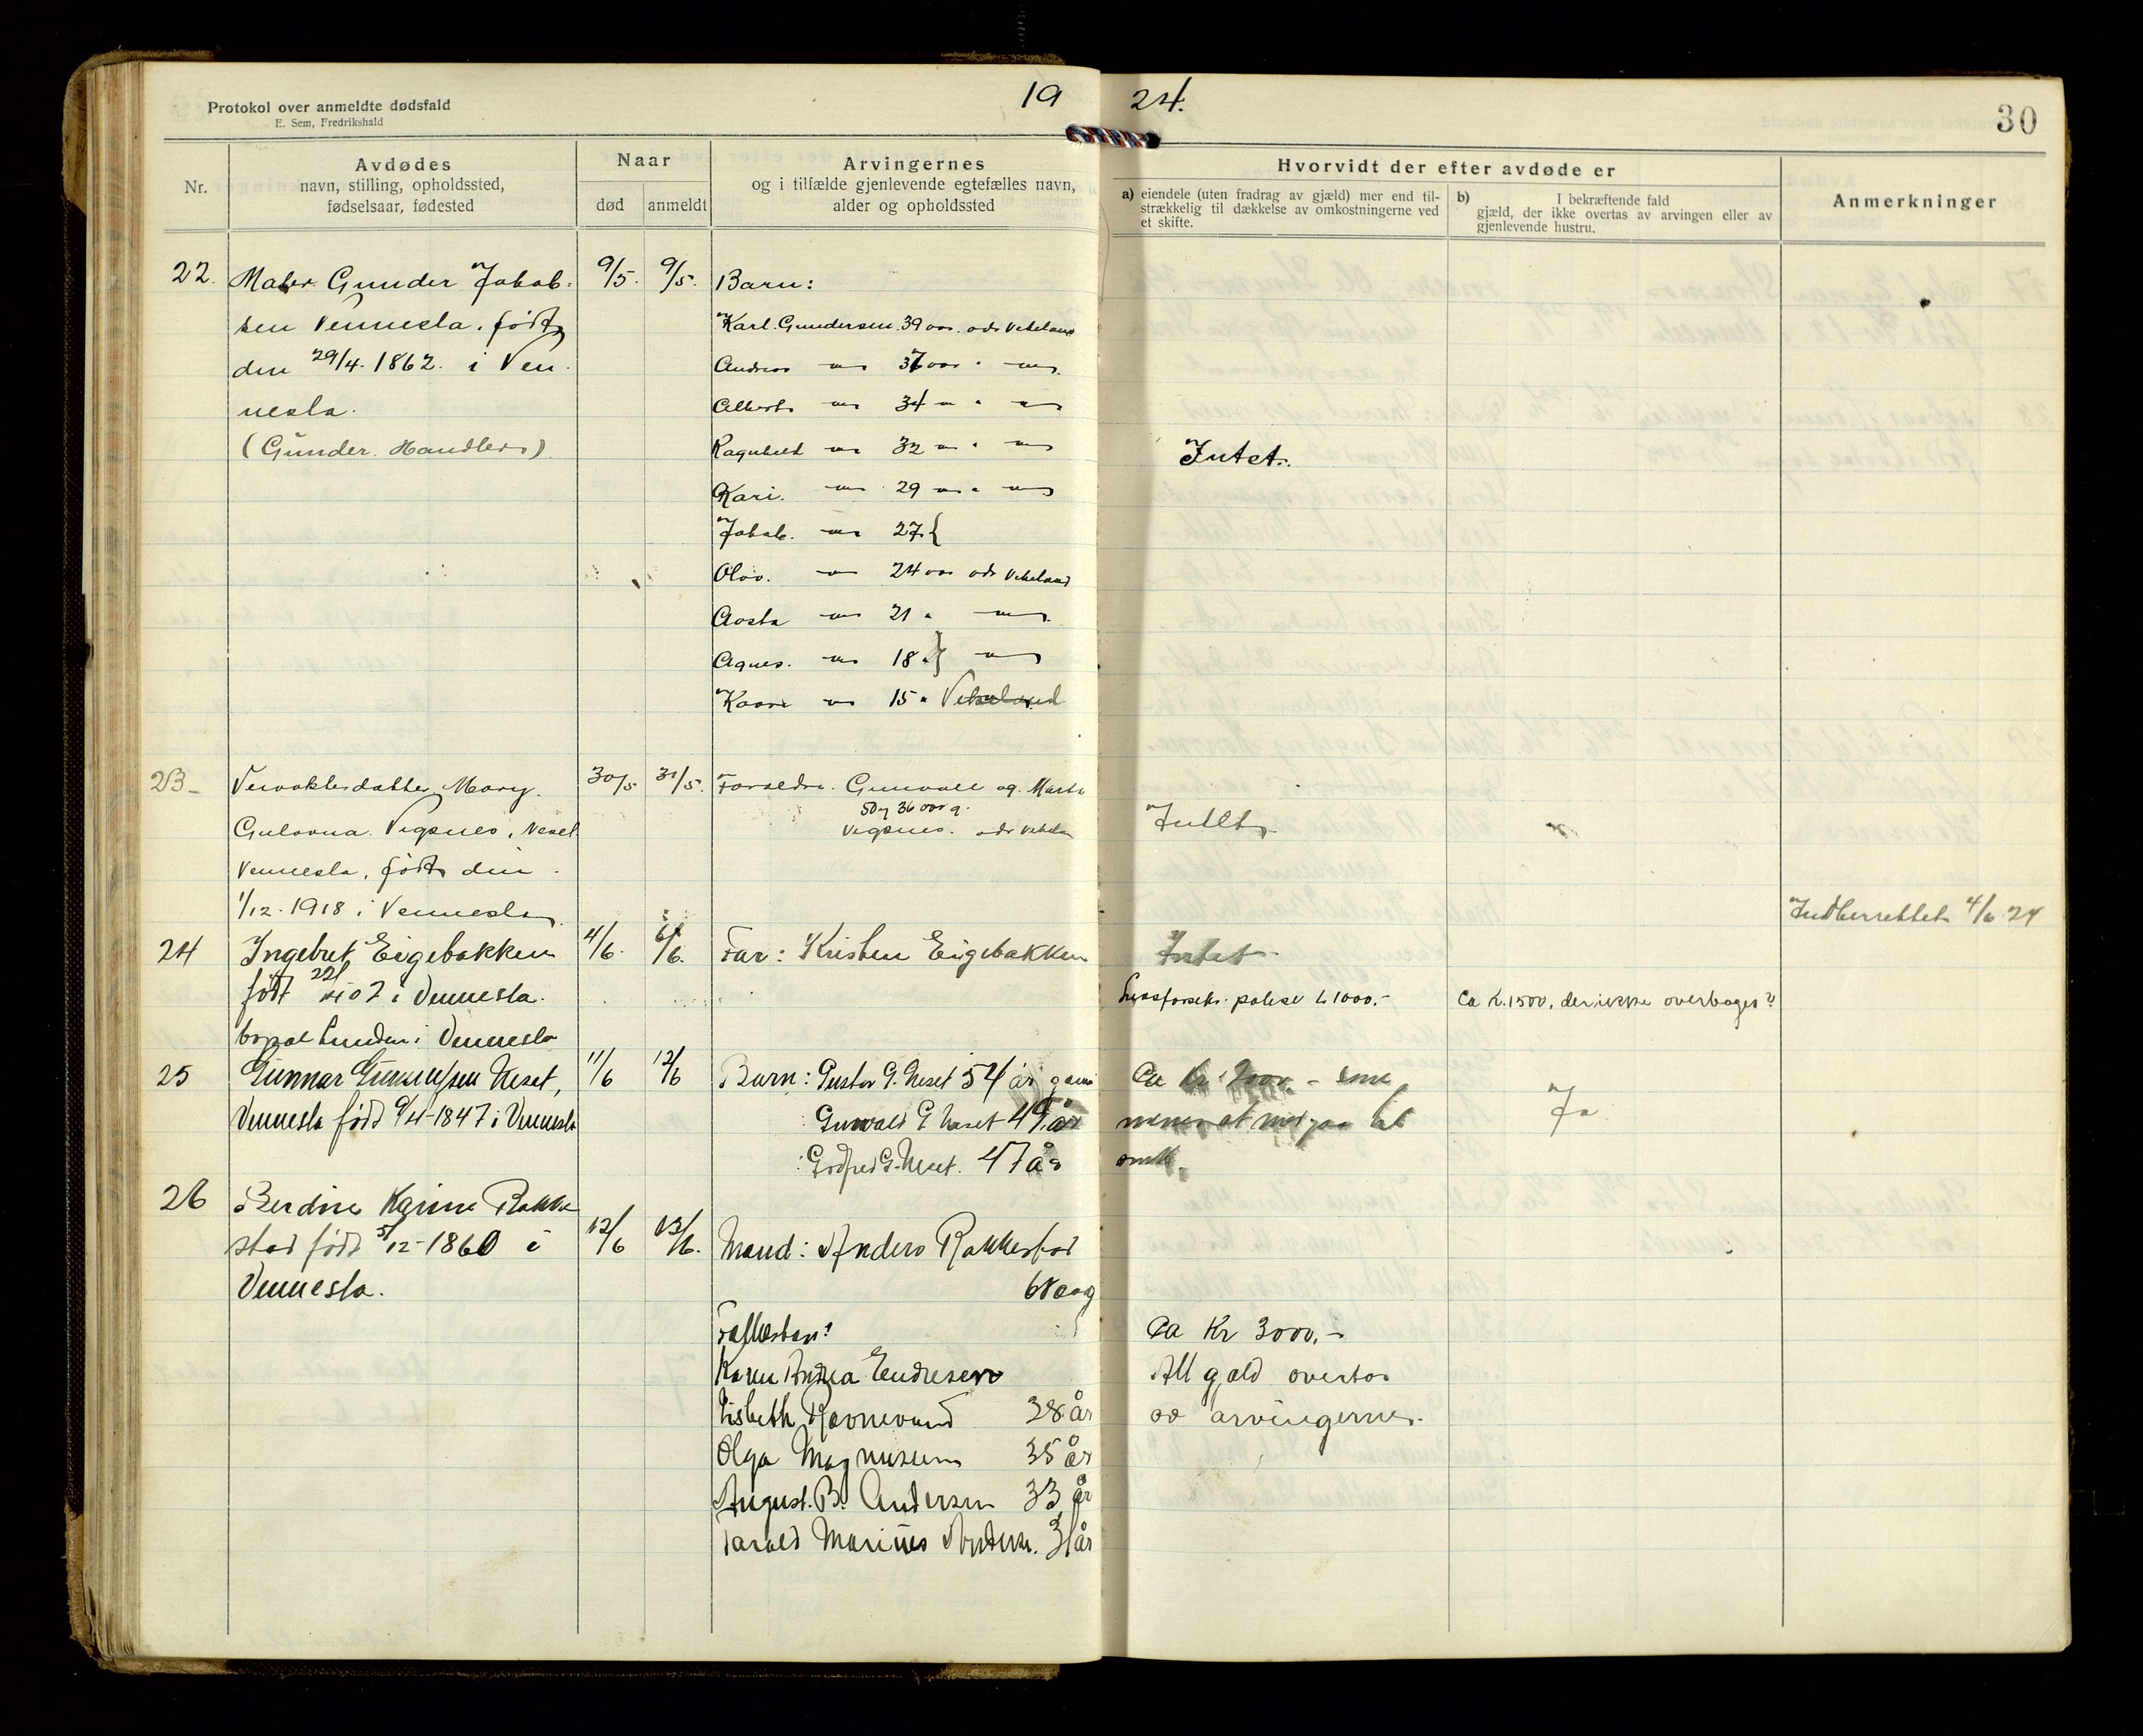 Protokol over anmeldte dødsfald
E. Sem, Fredrikshald
19 24.
30
Nr.
Avdødes
navn, stilling, opholdssted,
fødselsaar, fødested
Naar
død
anmeldt
Arvingernes
og i tilfælde gjenlevende egtefælles navn,
alder og opholdssted
Hvorvidt der efter avdøde er
a) eiendele (uten fradrag av gjæld) mer end til-
strækkelig til dækkelse av omkostningerne ved
et skifte.
b) I bekræftende fald
gjæld, der ikke overtas av arvingen eller av
gjenlevende hustru.
Anmerkninger
22. Maler Gunder Jakob-
sen Vennesla. født
den 29/4. 1862. i Ven-
nesla.
(Gunder Handlers)
9/5. 9/5.
Barn:
Karl. Gundersen. 39 aar.
Andreas 37 aar
Albert 34
Ragnhild 32
Kari. 29
Jakob. 27
Olav. 24 aar
Aasta 21
Agnes. 18
Kaare 15
Intet.
23
Mary.
Vigsnes.
Vennesla, født den
1/12-1918 i Vennesla.
30/5 31/5.
Foreldre. og. Marta
36 aar g.
Vigsnes.
Intet
Indberettet 4/6 24
24 Ingebret Eigebakken
født i Vennesla.
bopæl Lunden i Vennesla
4/6. 6/6.
Far: Kristen Eigebakken
Intet
Livsforsekr. polise k. 1000.-
Ca k. 1500, der ikke overtages?
25 Gunnar Gunnufsen Neset,
Vennesla født 9/4-1847 i Vennesla
11/6 12/6
Barn: Gustav G. Neset 54 år gam
Gunvald G Neset 49 år
Godfred G. Neset. 47 år
Ca kr. 2000.- som
menes at medgaa til
omk.
Ja
26 Berdine Karine Rakke
stad født 5/12-1860 i
Vennesla.
12/6 13/6.
Mand: Anders Rakkestad
Fællesbarn:
Karen Andrea Endresen
Lisbeth Ravnevand 38 år
Olga Magnussen 35 år
August. B. Andersen 33 år
Tarald Marius Anders. 31 år
Ca Kr 3000.-
All gjæld overtas
av arvingerne.